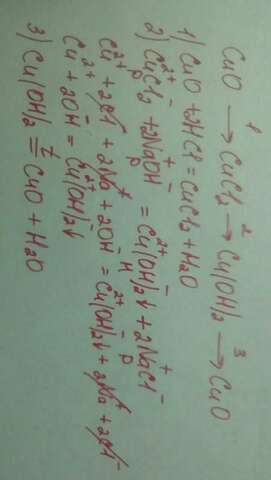 CuO →¹ CuCl₂ →² Cu(OH)₂ →³ CuO
1) CuO + 2HCl = CuCl₂ + H₂O
2) Cu²⁺Cl₂⁻ + 2Na⁺OH⁻ = Cu²⁺(OH)₂⁻↓ + 2Na⁺Cl⁻
р р Н р
Cu²⁺ + 2Cl⁻ + 2Na⁺ + 2OH⁻ = Cu²⁺(OH)₂⁻↓ + 2Na⁺ + 2Cl⁻
Cu²⁺ + 2OH⁻ = Cu²⁺(OH)₂⁻↓
3) Cu(OH)₂ =ᵗ CuO + H₂O